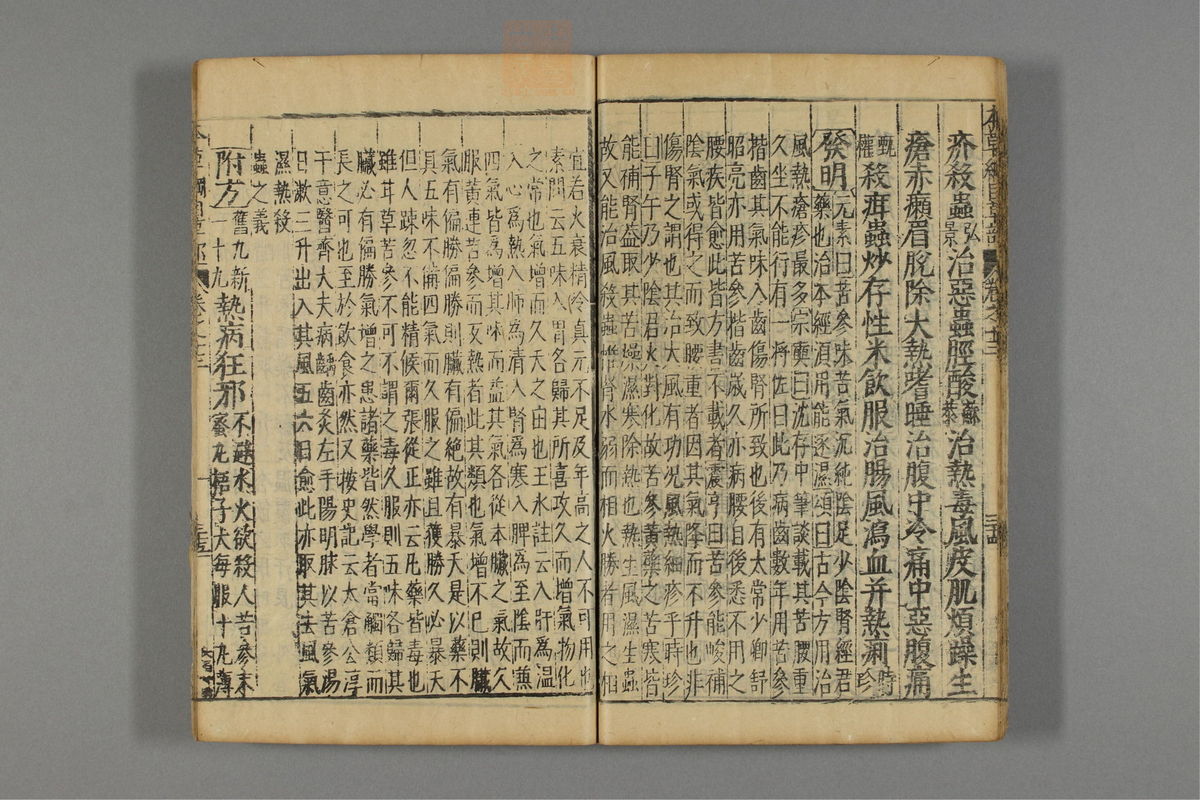 疥殺蟲弘景治惡蟲脛酸蘇恭治熱毒風皮肌煩躁生
瘡赤癩眉脫除大熱嗜睡治腹中冷痛中惡腹痛
甄權殺疳蟲炒存性米飲服治腸風瀉血并熱痢時珍
發明元素曰苦參味苦氣沉純陰足少陰腎經君
藥也治本經須用能逐濕頌曰古今方用治
風熱瘡疹最多宗奭曰沈存中筆談載其苦腰重
久坐不能行有一將佐曰此乃病齒數年用苦參
揩齒其氣味入齒傷腎所致也後有太常少卿舒
昭亮亦用苦參揩齒歲久亦病腰自後悉不用之
腰疾皆愈此皆方書不載者震亨曰苦參能峻補
陰氣或得之而致腰重者因其氣降而不升也非
傷腎之謂也其治大風有功況風熱細疹乎時珍
曰子午乃少陰君火對化故苦參黃蘗之苦寒皆
能補腎蓋取其苦燥濕寒除熱也熱生風濕生蟲
故又能治風殺蟲惟腎水弱而相火勝者用之相
宜若火衰精冷真元不足及年高之人不可用也
素問云五味入胃各歸其所喜攻久而增氣物化
之常也氣增而久夭之由也王冰註云入肝為溫
入心為熱入肺為清入腎為寒入脾為至陰而兼
四氣皆為增其味而益其氣各從本臟之氣故久
服黃連苦參而反熱者此其類也氣增不已則臟
氣有偏勝偏勝則臟有偏絕故有暴夭是以藥不
具五味不備四氣而久服之雖且獲勝久必暴夭
但人疎忽不能精候爾張從正亦云凡藥皆毒也
雖甘草苦參不可不謂之毒久服則五味各歸其
臟必有偏勝氣增之患諸藥皆然學者當觸類而
長之可也至於飲食亦然又按史記云太倉公淳
于意醫齊大夫病齲齒灸左手陽明脉以苦參湯
日漱三升出入其風五六日愈此亦取其去風氣
濕熱殺
蟲之義
附方舊九新一十九熱病狂邪不避水火欲殺人苦參末蜜丸梧子大每服十丸薄